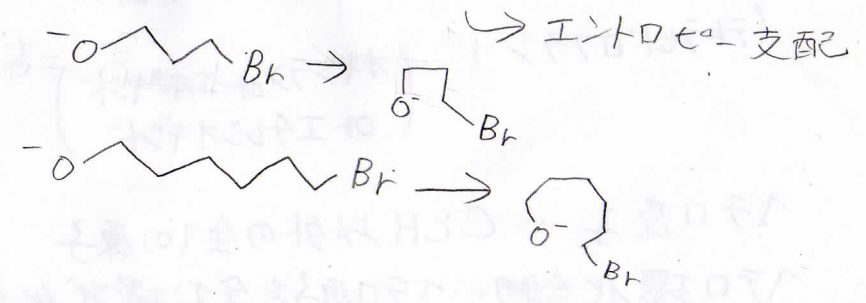 ↳ エントロピー支配
⁻O Br → O⁻ Br
⁻O Br → O⁻ Br